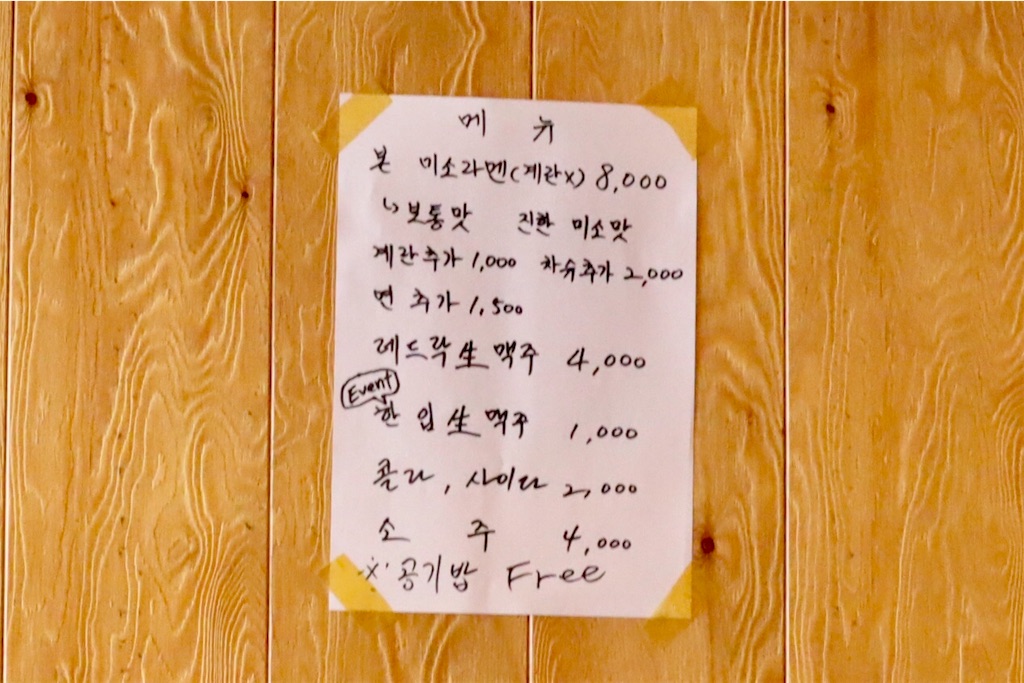 메 뉴
본 미소라멘(계란X) 8,000
↳보통맛 진한 미소맛
계란추가 1,000 차슈추가 2,000
면 추가 1,500
레드락生맥주 4,000
Event
한 입 生맥주 1,000
콜라, 사이다 2,000
소 주 4,000
※ 공기밥 Free